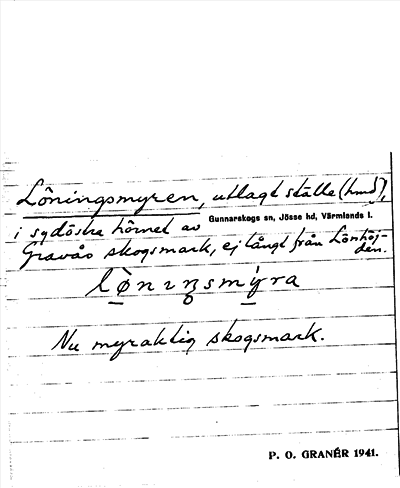 Löningsmyren, utlagt ställe (hmd),
i sydöstra hörnet av Gunnarskogs sn, Jösse hd, Värmlands l.
Gravås skogsmark, ej långt från Lönhöj-
den.
lø̀nıŋsmýra
Nu myraktig skogsmark.
P. O. GRANÉR 1941.